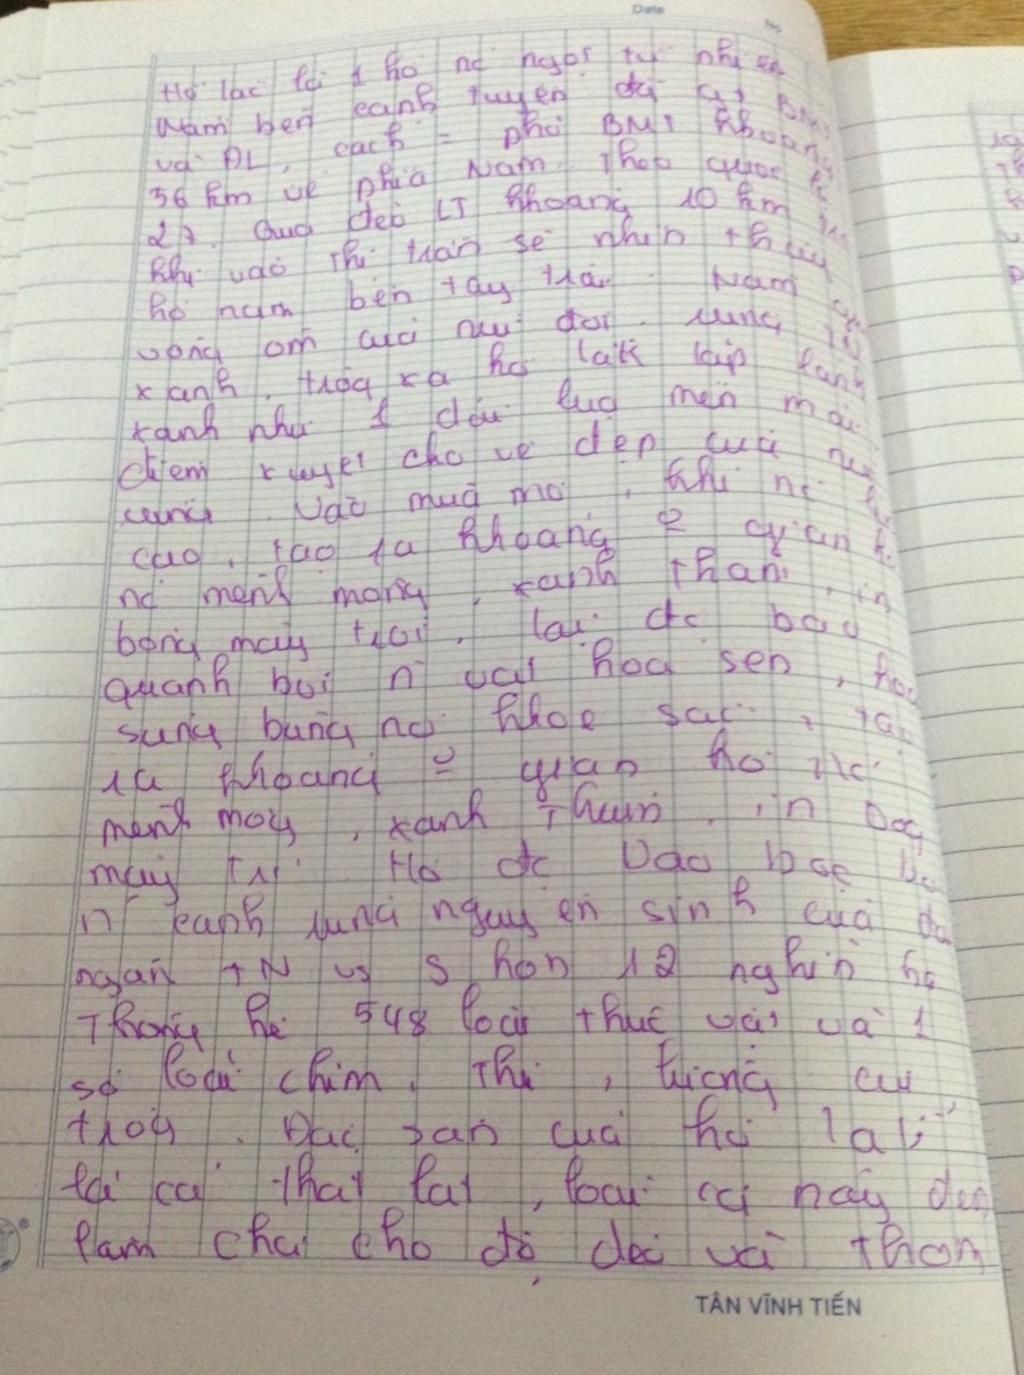 Date No
Hồ lắc là 1 hồ nc ngọt tự nhiên
Nằm bên cạnh tuyến đg từ BMT
và ĐL, cách = phố BMT khoảng
56 km về phía Nam. Theo quốc lộ
27. Qua đèo LT khoảng 10 km
khi vào thị trấn sẽ nhìn thấy
hồ nằm bên tay trái. Nằm
vòng ôm của núi đồi. rừng
xanh, trog xa hồ lăk lấp lánh
xanh như 1 dải lụa mềm mại
điểm xuyết cho vẻ đẹp của núi
rừng. Vào mùa mưa, khi nc
cao, tạo ra khoảng = gian
nc mênh mông, xanh thẳm, in
bóng mây trời, lại đc bao
quanh bởi n vạt hoa sen, hoa
súng bung nở khoe sắc, tạo
ra khoảng = gian hồ nc
mênh mog, xanh thẳm, in bóg
mây trời Hồ đc bao bọc bởi
n cánh rừng nguyên sinh của đại
ngàn TN vs S hơn 12 nghìn ha
Thống kê 548 loài thực vật và 1
số loài chim, thú, lưỡng cư
trog. Đặc sản của hồ lăk
là cá thát lát, loại cá này đem
làm chả cho độ dẻo và thơm
TÂN VĨNH TIẾN